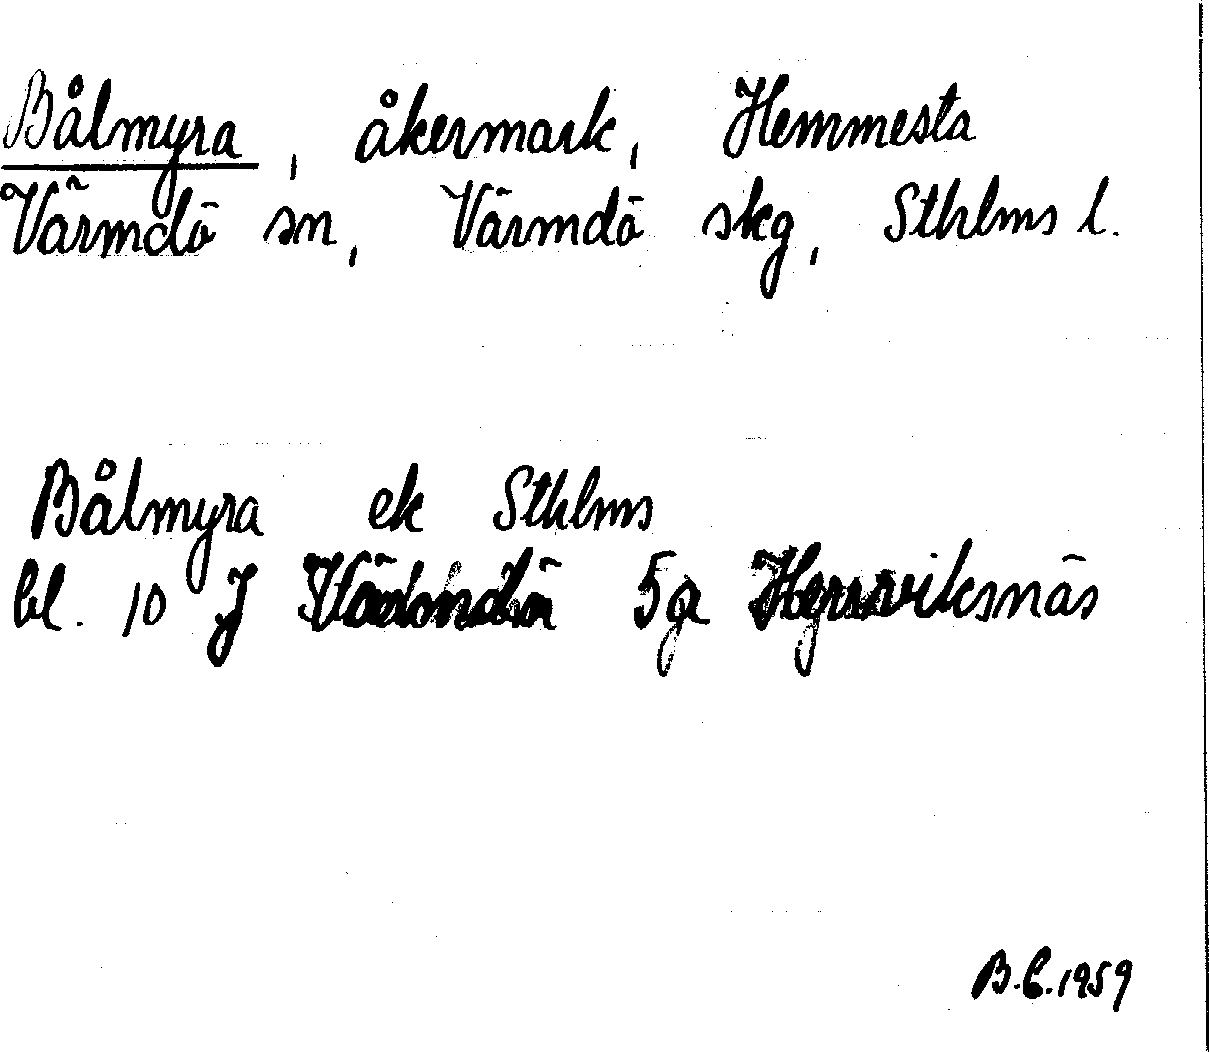 Bålmyra, åkermark, Hemmesta
Värmdö sn, Värmdö skg, Sthlms l.
Bålmyra ek Sthlms
bl. 10 J 5 g
B.C. 1959